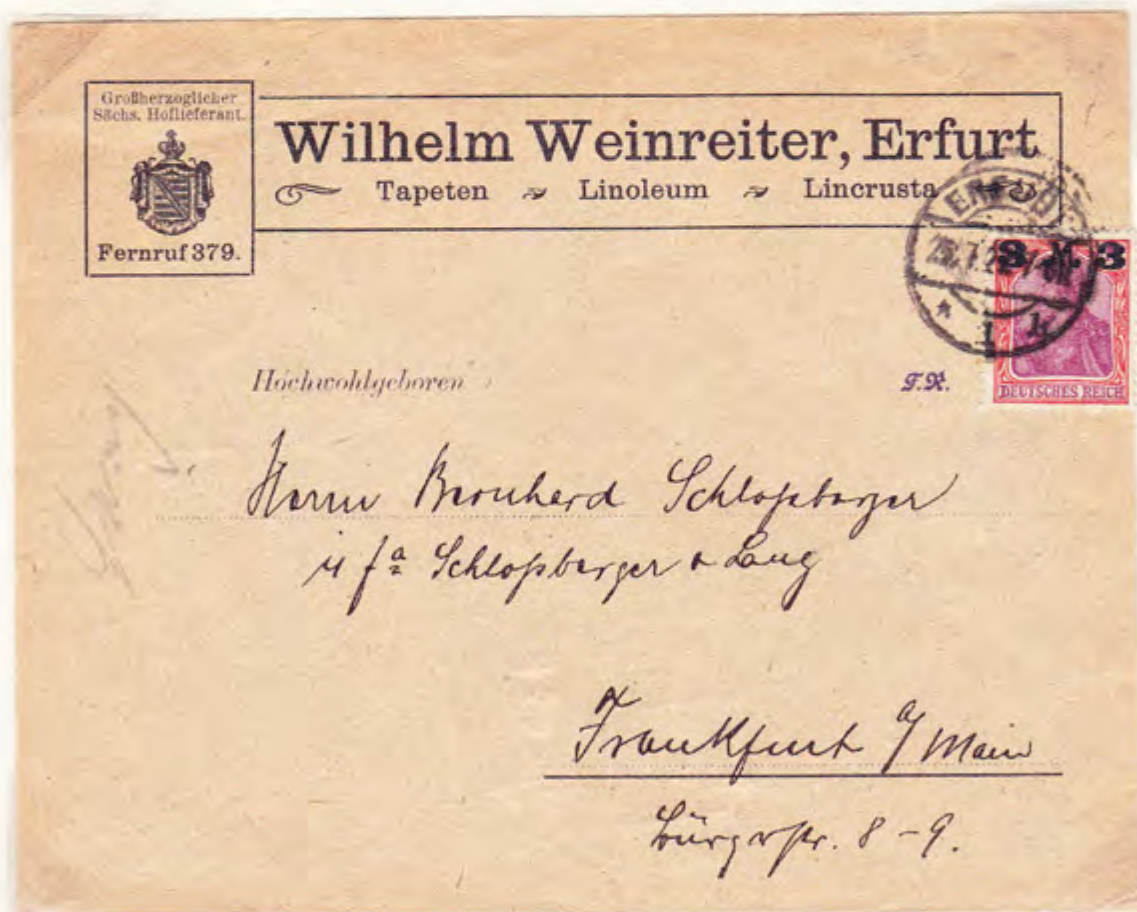 Großherzoglicher
Sächs. Hoflieferant.
Fernruf 379.
Wilhelm Weinreiter, Erfurt
Tapeten Linoleum Lincrusta
ERFURT
1 k
3 M 3
DEUTSCHES REICH
Hochwohlgeboren
T.R.
Herrn Bernhard Schloßberger
fa Schloßberger & Lang
Frankfurt a/Main
8-9.